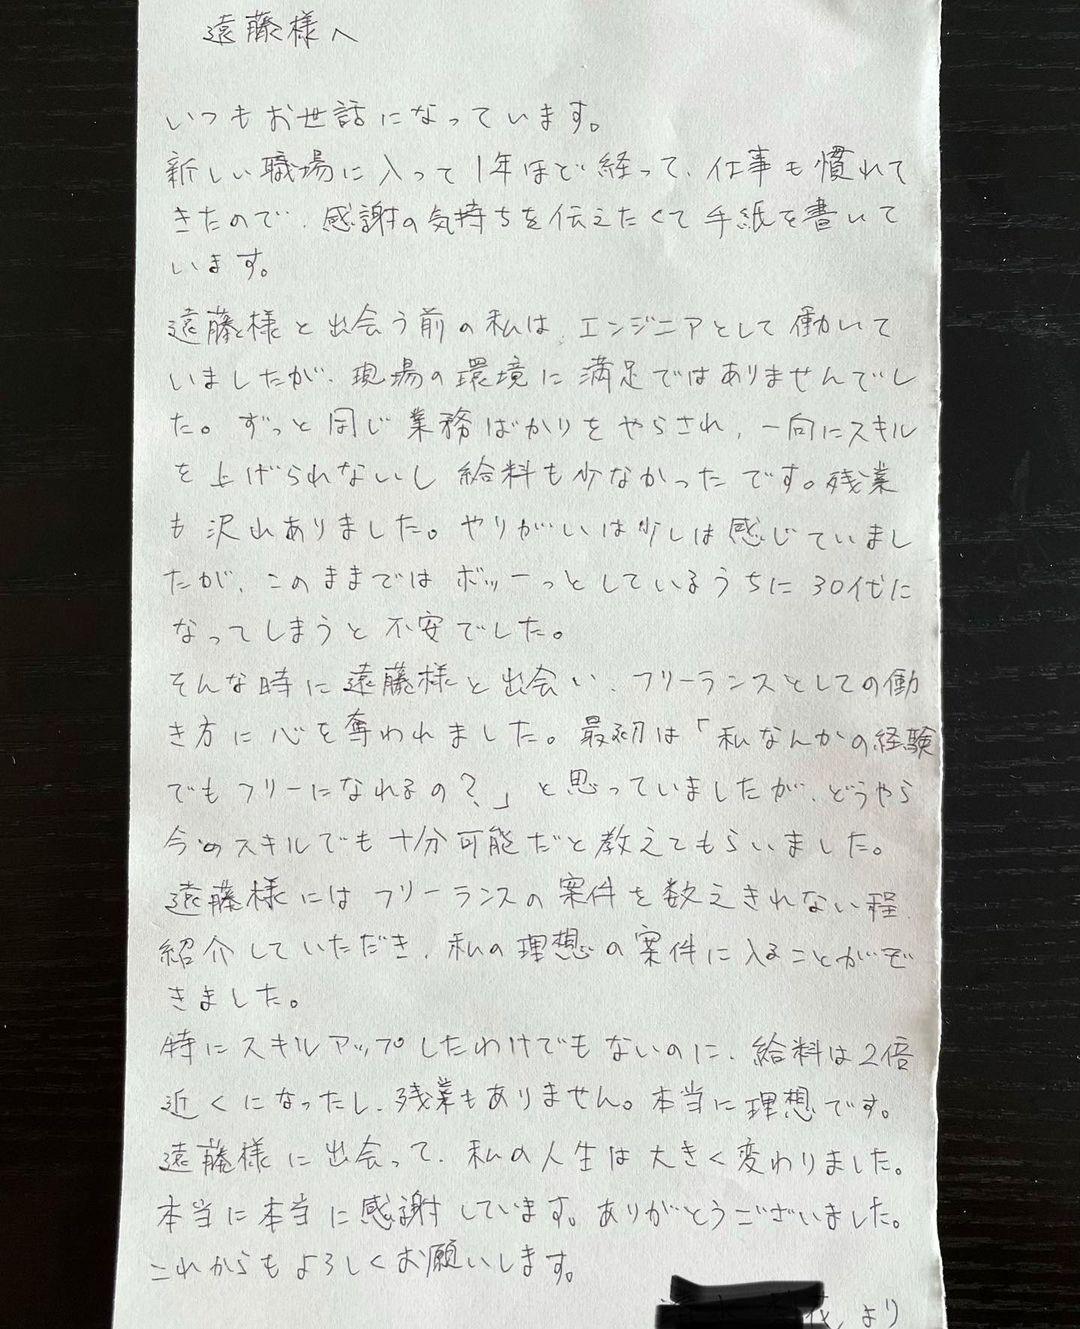 遠藤様へ
いつもお世話になっています。
新しい職場に入って1年ほど経って、仕事も慣れて
きたので、感謝の気持ちを伝えたくて手紙を書いて
います。
遠藤様と出会う前の私は、エンジニアとして働いて
いましたが、現場の環境に満足ではありませんでし
た。ずっと同じ業務ばかりをやらされ、一向にスキル
を上げられないし給料も少なかったです。残業
も沢山ありました。やりがいは少しは感じていまし
たが、このままではボッーっとしているうちに30代に
なってしまうと不安でした。
そんな時に遠藤様と出会い、フリーランスとしての働
き方に心を奪われました。最初は「私なんかの経験
でもフリーになれるの?」と思っていましたが、どうやら
今のスキルでも十分可能だと教えてもらいました。
遠藤様にはフリーランスの案件を数えきれない程、
紹介していただき、私の理想の案件に入ることがで
きました。
特にスキルアップしたわけでもないのに、給料は2倍
近くになったし、残業もありません。本当に理想です。
遠藤様に出会って、私の人生は大きく変わりました。
本当に本当に感謝しています。ありがとうございました。
これからもよろしくお願いします。
より